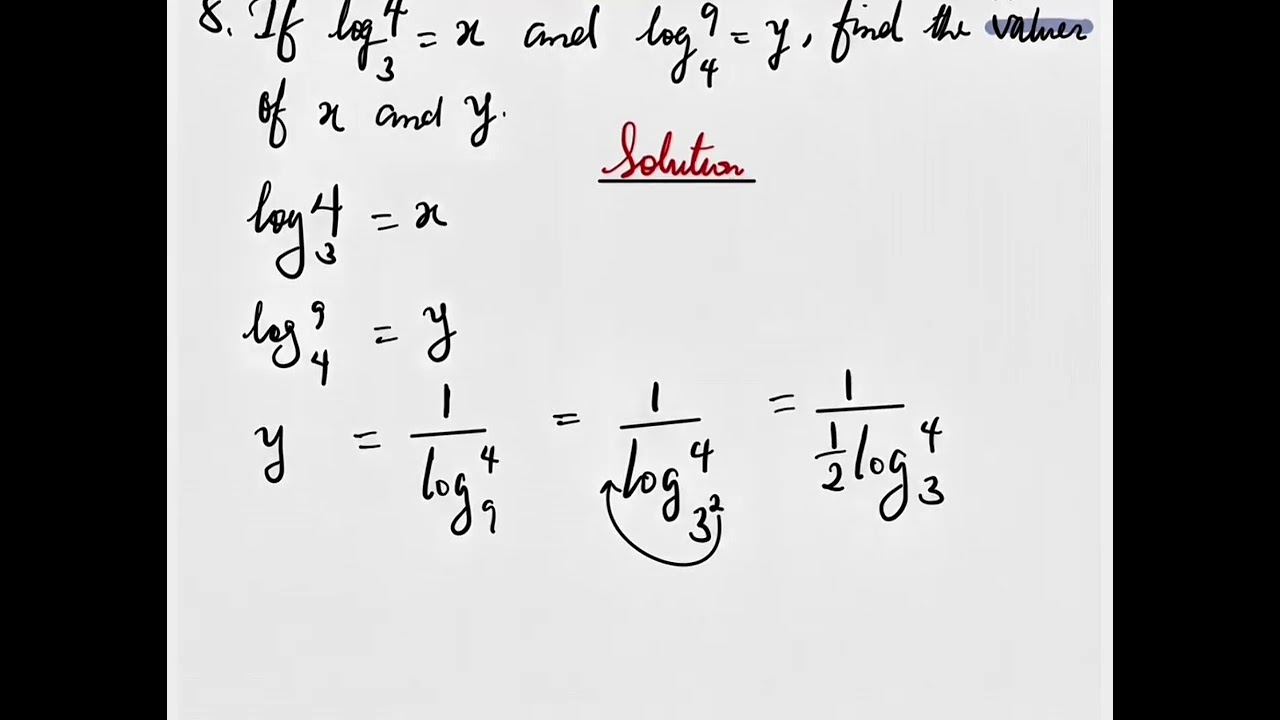 8. If log₃4 = x and log₄9 = y, find the values
of x and y.
Solution
log₃4 = x
log₄9 = y
y = 1/log₉4 = 1/log₃²4 = 1/(1/2 log₃4)